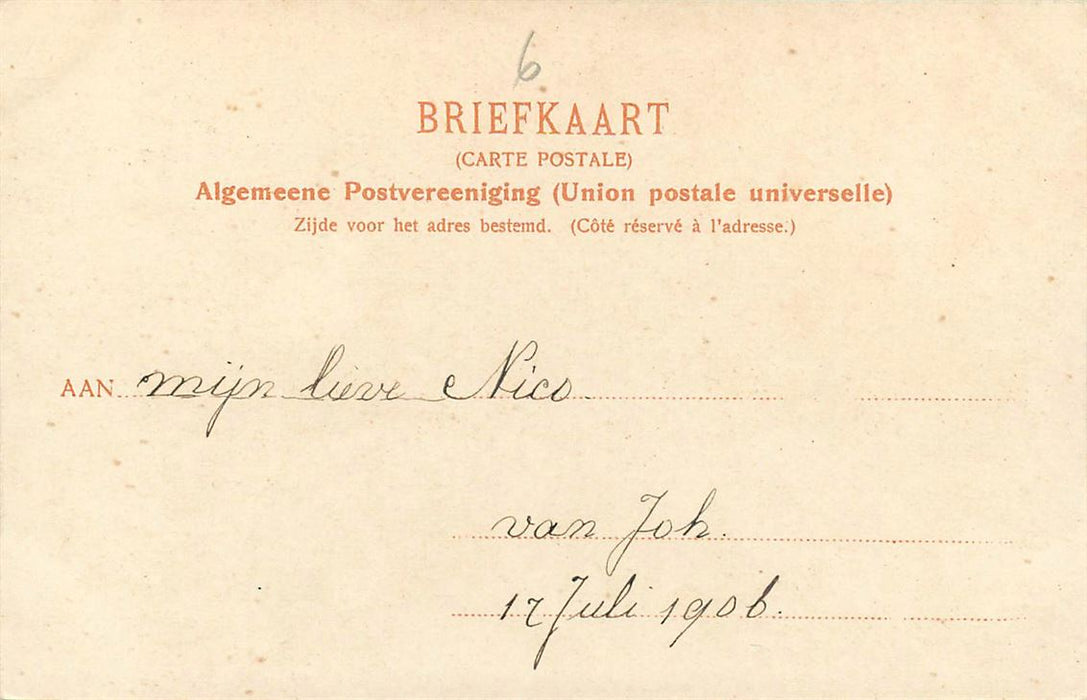 6
BRIEFKAART
(CARTE POSTALE)
Algemeene Postvereeniging (Union postale universelle)
Zijde voor het adres bestemd. (Côté réservé à l'adresse.)
AAN mijn lieve Nico
van Joh.
17 Juli 1906.